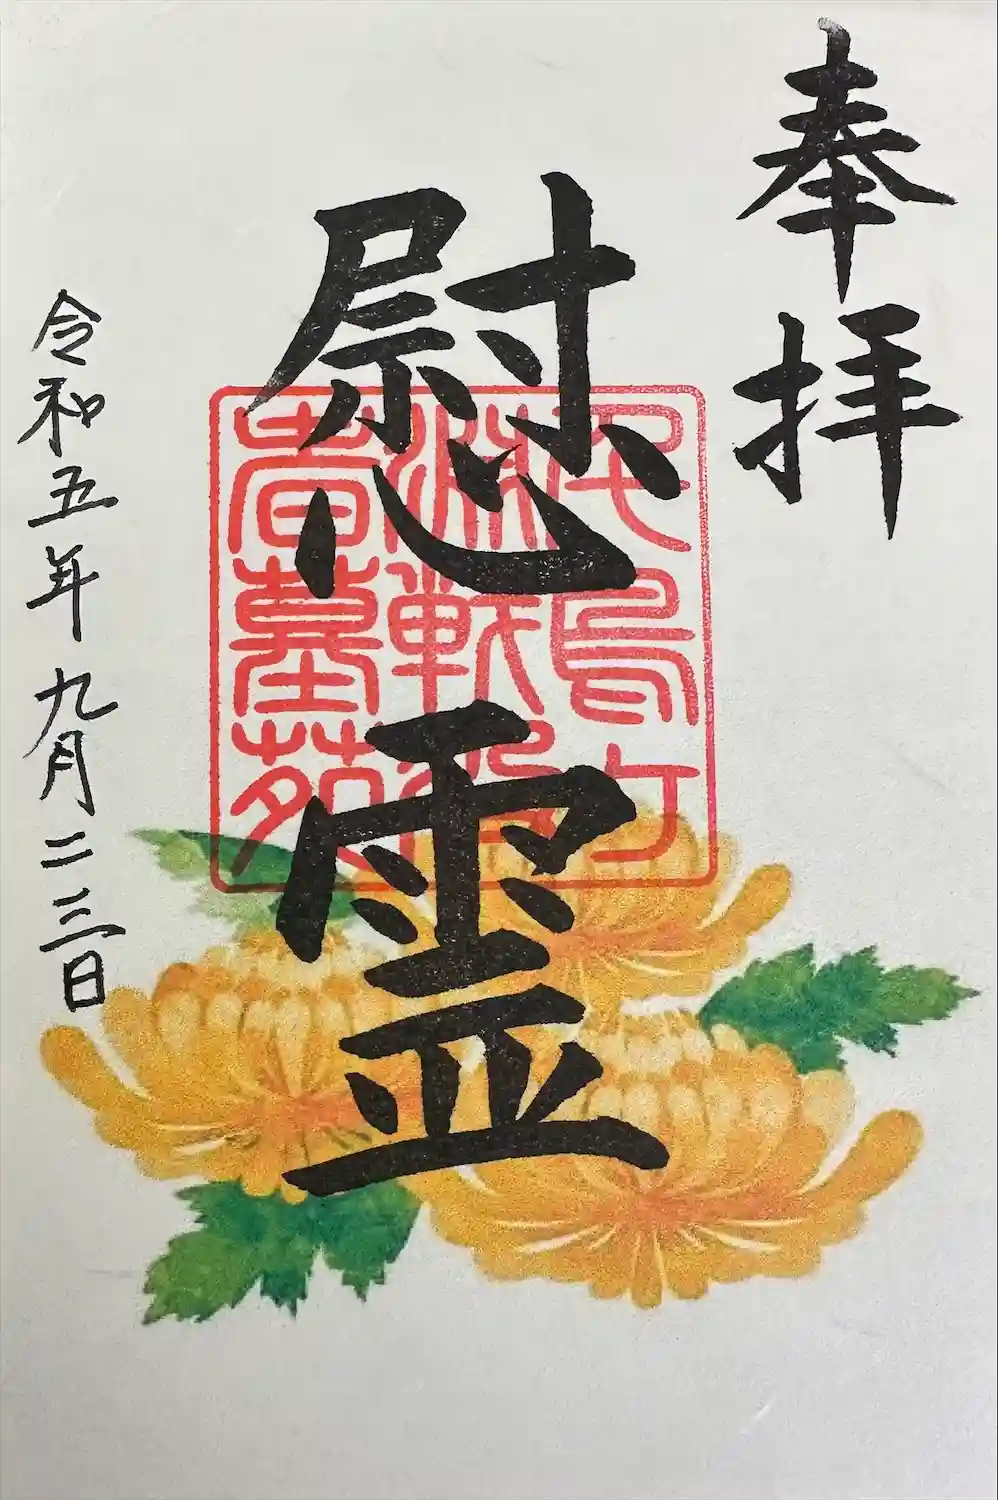 奉拝
慰霊
千鳥ケ
淵戦没
者墓苑
令和五年九月二三日